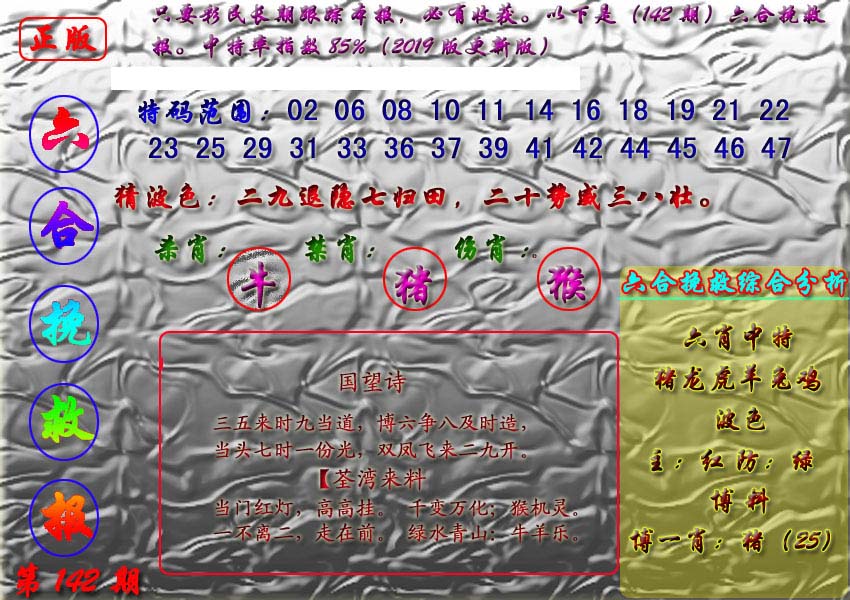 正版
只要彩民长期跟踪本报，必有收获。以下是（142期）六合挽救
报。中特率指数85%（2019版更新版）
六
合
挽
救
报
第142期
特码范围：02 06 08 10 11 14 16 18 19 21 22
23 25 29 31 33 36 37 39 41 42 44 45 46 47
猜波色：二九退隐七归田，二十势威三八壮。
杀肖：牛 禁肖：猪 伤肖：。猴
国望诗
三五来时九当道，博六争八及时造，
当头七时一份光，双凤飞来二九开。
【荃湾来料
当门红灯，高高挂。 千变万化；猴机灵。
一不离二，走在前。 绿水青山：牛羊乐。
六合挽救综合分析
六肖中特
猪龙虎羊兔鸡
波色
主：红防：绿
博料
博一肖：猪（25）